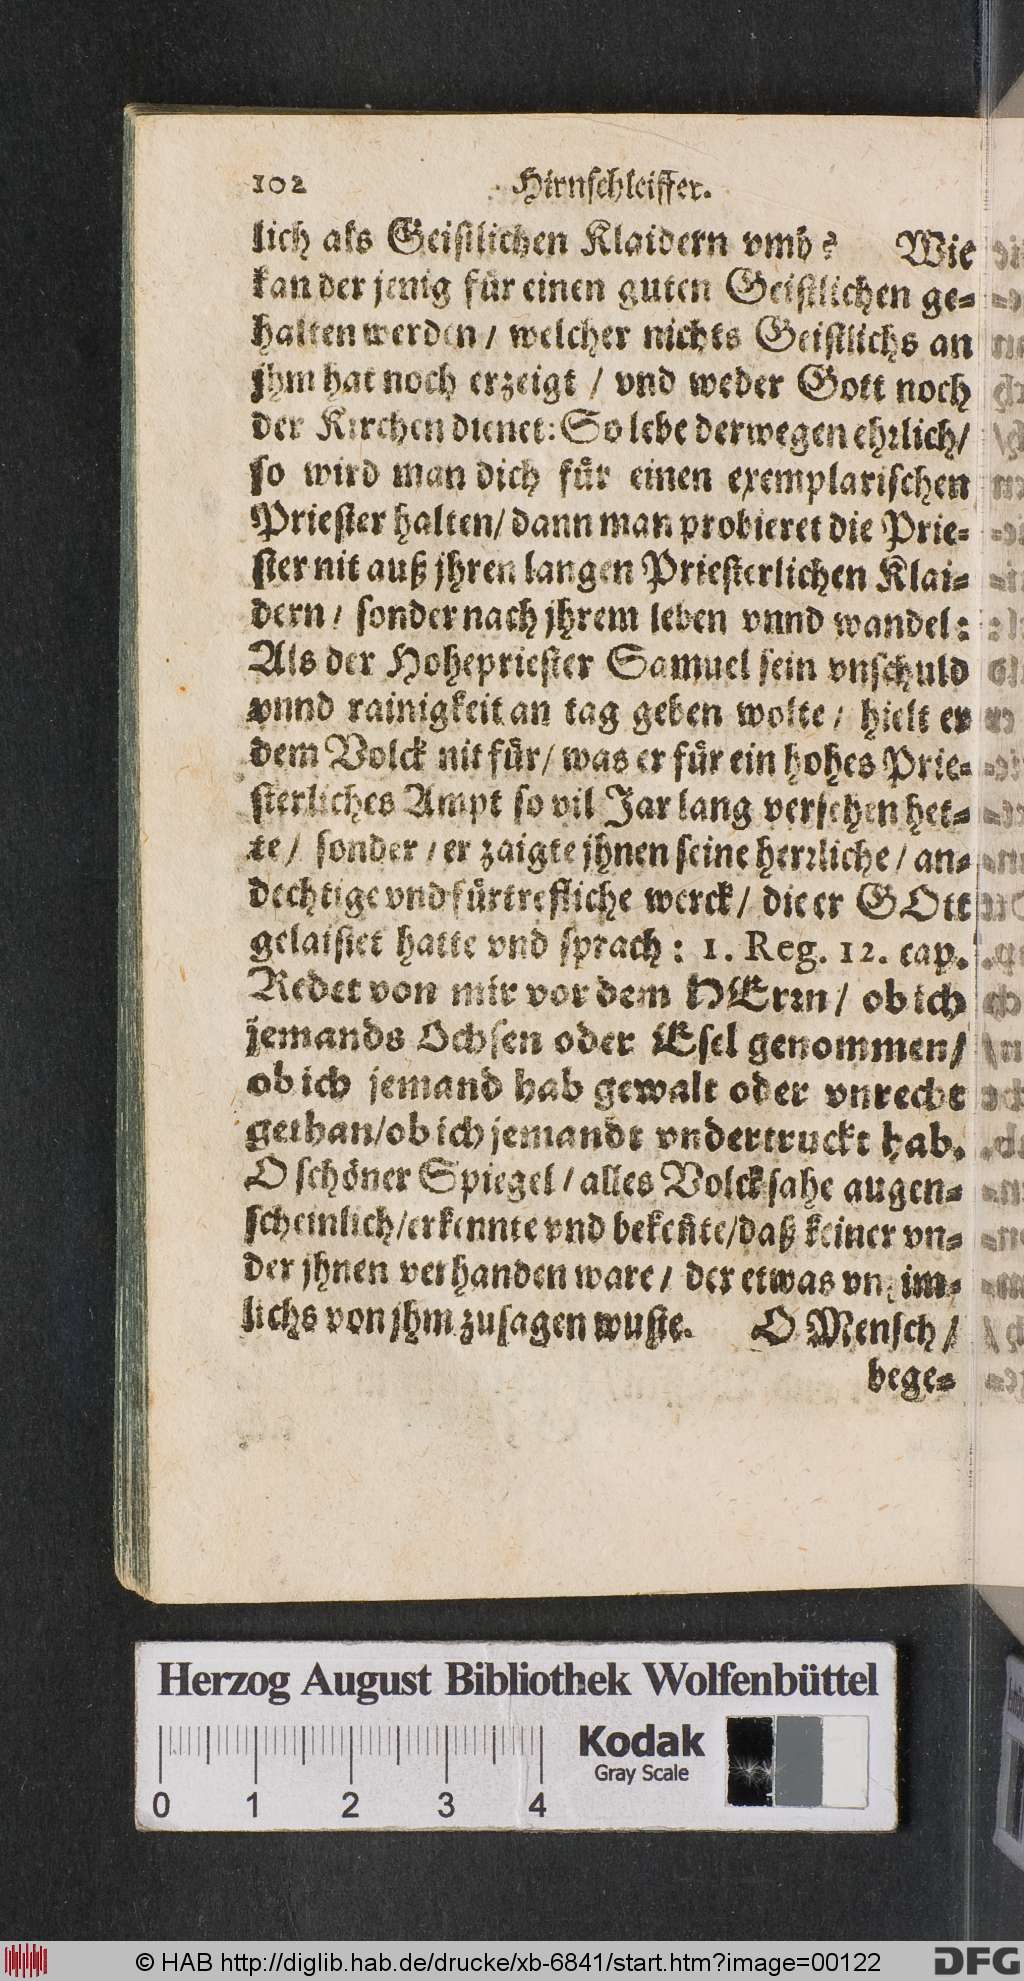 102 Hirnschleiffer.
lich als Geistlichen Klaidern vmb? Wie
kan der jenig für einen guten Geistlichen ge-
halten werden / welcher nichts Geistlichs an
jhm hat noch erzeigt / vnd weder Gott noch
der Kirchen dienet: So lebe derwegen ehrlich/
so wird man dich für einen exemplarischen
Priester halten/ dann man probieret die Prie-
ster nit auß jhren langen Priesterlichen Klai-
dern / sonder nach jhrem leben vnnd wandel:
Als der Hohepriester Samuel sein vnschuld
vnnd rainigkeit an tag geben wolte / hielt er
dem Volck nit für/ was er für ein hohes Prie-
sterliches Ampt so vil Jar lang versehen het-
te / sonder / er zaigte jhnen seine herrliche / an-
dechtige vnd fürtrefliche werck / die er GOtt
gelaistet hatte vnd sprach: 1. Reg. 12. cap.
Redet von mir vor dem HErrn / ob ich
jemands Ochsen oder Esel genommen/
ob ich jemand hab gewalt oder vnrecht
gethan/ob ich jemandt vndertruckt hab.
O schöner Spiegel / alles Volck sahe augen-
scheinlich/erkennte vnd bekeñte/daß keiner vn-
der jhnen verhanden ware / der etwas vnzim-
lichs von jhm zusagen wuste. O Mensch /
bege-
Herzog August Bibliothek Wolfenbüttel
Kodak
Gray Scale
0 1 2 3 4
© HAB http://diglib.hab.de/drucke/xb-6841/start.htm?image=00122
DFG